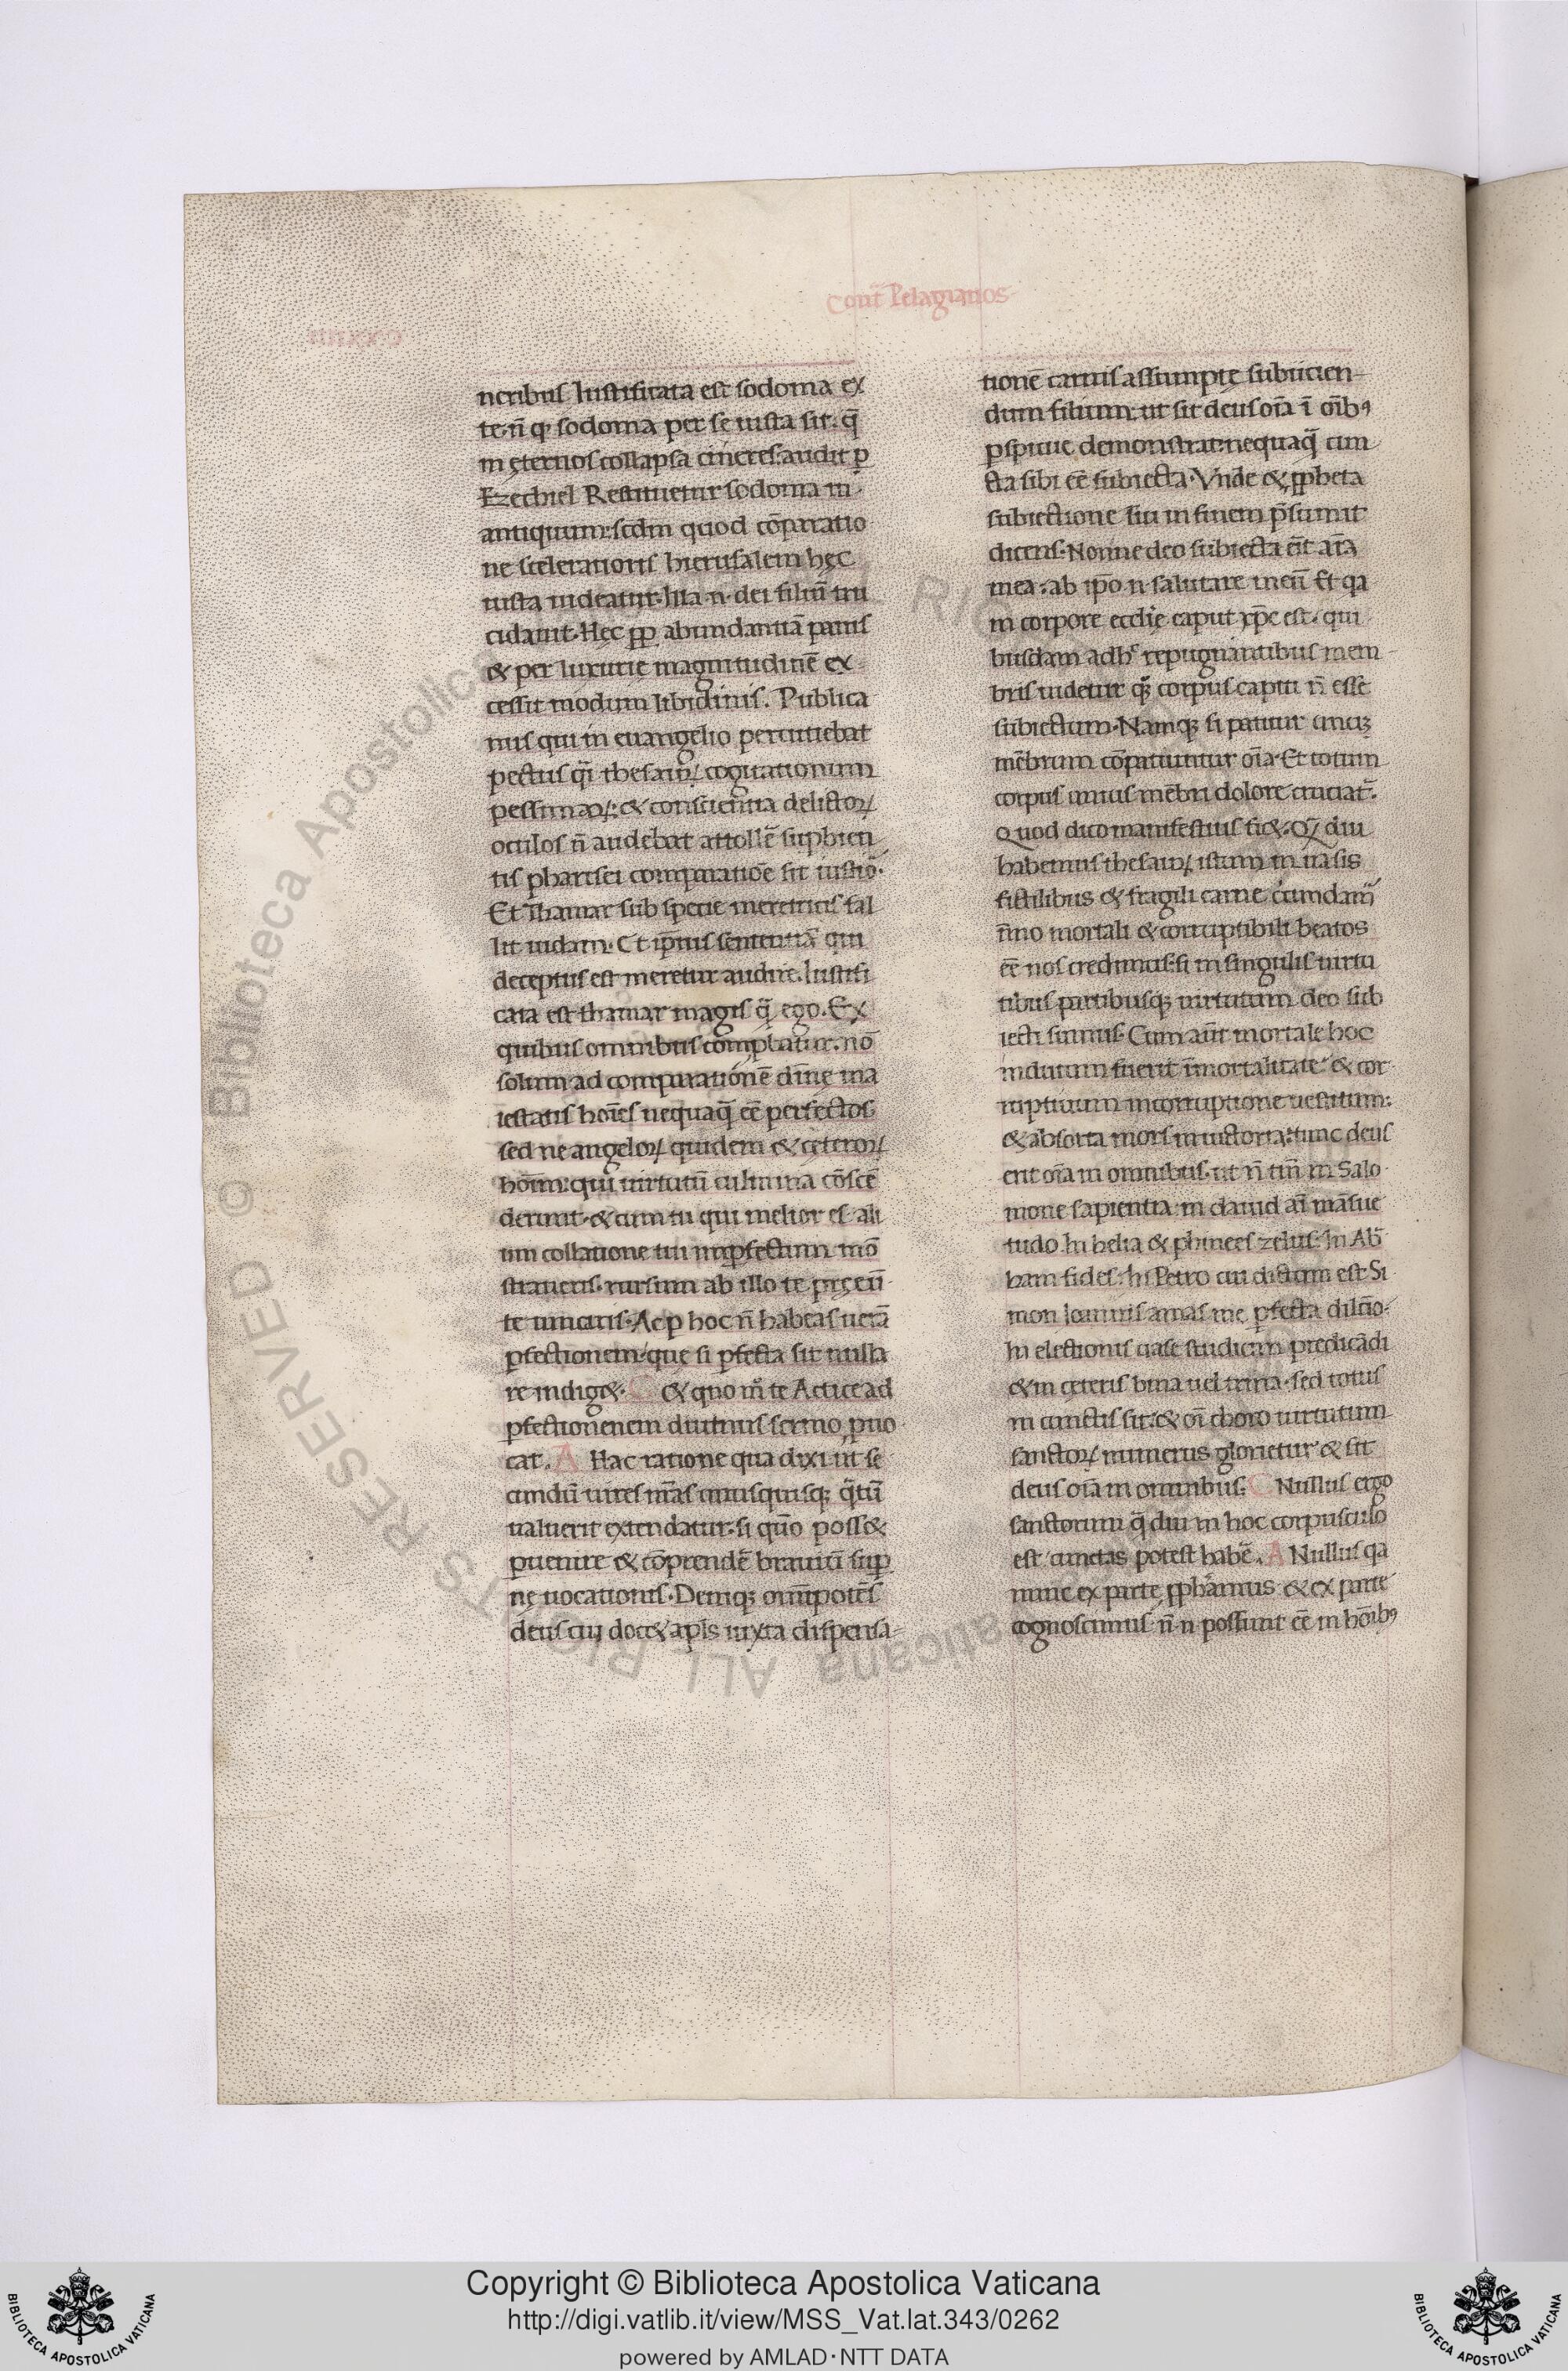 Cont̄ Pelagianos
neribus Iustificata est sodoma ex
te. n̄ q sodoma per se iusta sit. q̄
in ęternos collapsa cineres. audit p̲
Ezechiel Restituetur sodoma in
antiquum: scdm quod cōparatio
ne sceleratioris hierusalem hęc
iusta uideatur. Illa n. dei filiū tru
cidauit. Hęc pp̲ abundantiā panis
& per luxurie magnitudinē ex
cessit modum libidinis. Publica
nus qui in euangelio percutiebat
pectus qi thesaurꝝ cogitationum
pessimarꝝ: & conscientia delictorꝝ
oculos n̄ audebat attollē supbien
tis pharisei comparatiōe fit iustiō.
Et Thamar sub specie meretricis fal
lit iudam. Et ip̄ius sententiā qui
deceptus est meretur audire. Iustifi
cata est thamar magis q̄ ego. Ex
quibus omnibus comp̱batur. nō
solum ad comparationē diuinę ma
iestatis hoīes nequaq̄ eē perfectos
sed ne angelorꝝ quidem & ceterorꝝ
hoīm: qui uirtutū culmina cōscē
derunt. & cum tu qui melior es ali
um collatione tui imp̲fectum mō
straueris. rursum ab illo te pręeū
te uincaris. Ac p̲ hoc n̄ habeas uerā
p̲fectionem. que si p̲fecta sit nulla
re indig&. C & quo m̄ te Attice ad
p̲fectionenem diuinus sermo ꝓuo
cat. A Hac ratione qua dixi ut se
cundū uires nr̄as unusquisqꝫ q̄tū
ualuerit extendatur. si quō poss&
p̲uenire & cōprendē brauiū sup̲
nę uocationis. Deniqꝫ omīpotēs
deus cui doc& apls iuxta dispensa-
tionē carnis assumptę subiicien-
dum filium. ut sit deus oīa ī oīb9
p̲spicue demonstrat: nequaq̄ cun
cta sibi eē subiecta. Vnde & ꝓpheta
subiectione sui in finem p̄sumit
dicens. Nonne deo subiecta erit aīa
mea. ab ipo n salutare meū Et qa
in corpore ecclię caput xp̄c est. qui
busdam adhꝰ repugnantibus mem-
bris uidetur qꝫ corpus capiti n̄ esse
subiectum. Namqꝫ si patitur unuꝫ
mēbrum cōpatiuntur oīa. Et totum
corpus unius mēbri dolore cruciat̄.
Quod dico manifestius fi&. Qꝫ diu
habemus thesaurꝝ istum in uasis
fictilibus & fragili carne cūmdam̄
īmo mortali & corruptibili beatos
eē nos credimus. si in singulis uirtu
tibus partibusqꝫ uirtutum deo sub
iecti sumus. Cum aūt mortale hoc
indutum fuerit īmortalitate & cor-
ruptiuum incorruptione uestitum:
& absorta mors in uictoria: tunc deus
erit oīa in omnibus. ut n̄ tm̄ in Salo-
mone sapientia in dauid aī māsue
tudo. In helia & phinees zelus. In Ab-
ham fides. In Petro cui dictum est Si
mon Ioannis amas me p̲fecta dilcīo.
In electionis uase studium predicādi
& in ceteris bina uel trina. sed totus
in cunctis sit. & oī choro uirtutum
sanctorꝝ numerus glorietur & sit
deus oīa in omnibus. C Nullus ergo
sanctorum q̄ diu in hoc corpusculo
est cunctas potest habē. A Nullus qa
nunc ex parte ꝓphāmus & ex parte
cognoscimus. n̄ n possunt eē in hoīb9
Copyright © Biblioteca Apostolica Vaticana
http://digi.vatlib.it/view/MSS_Vat.lat.343/0262
powered by AMLAD·NTT DATA